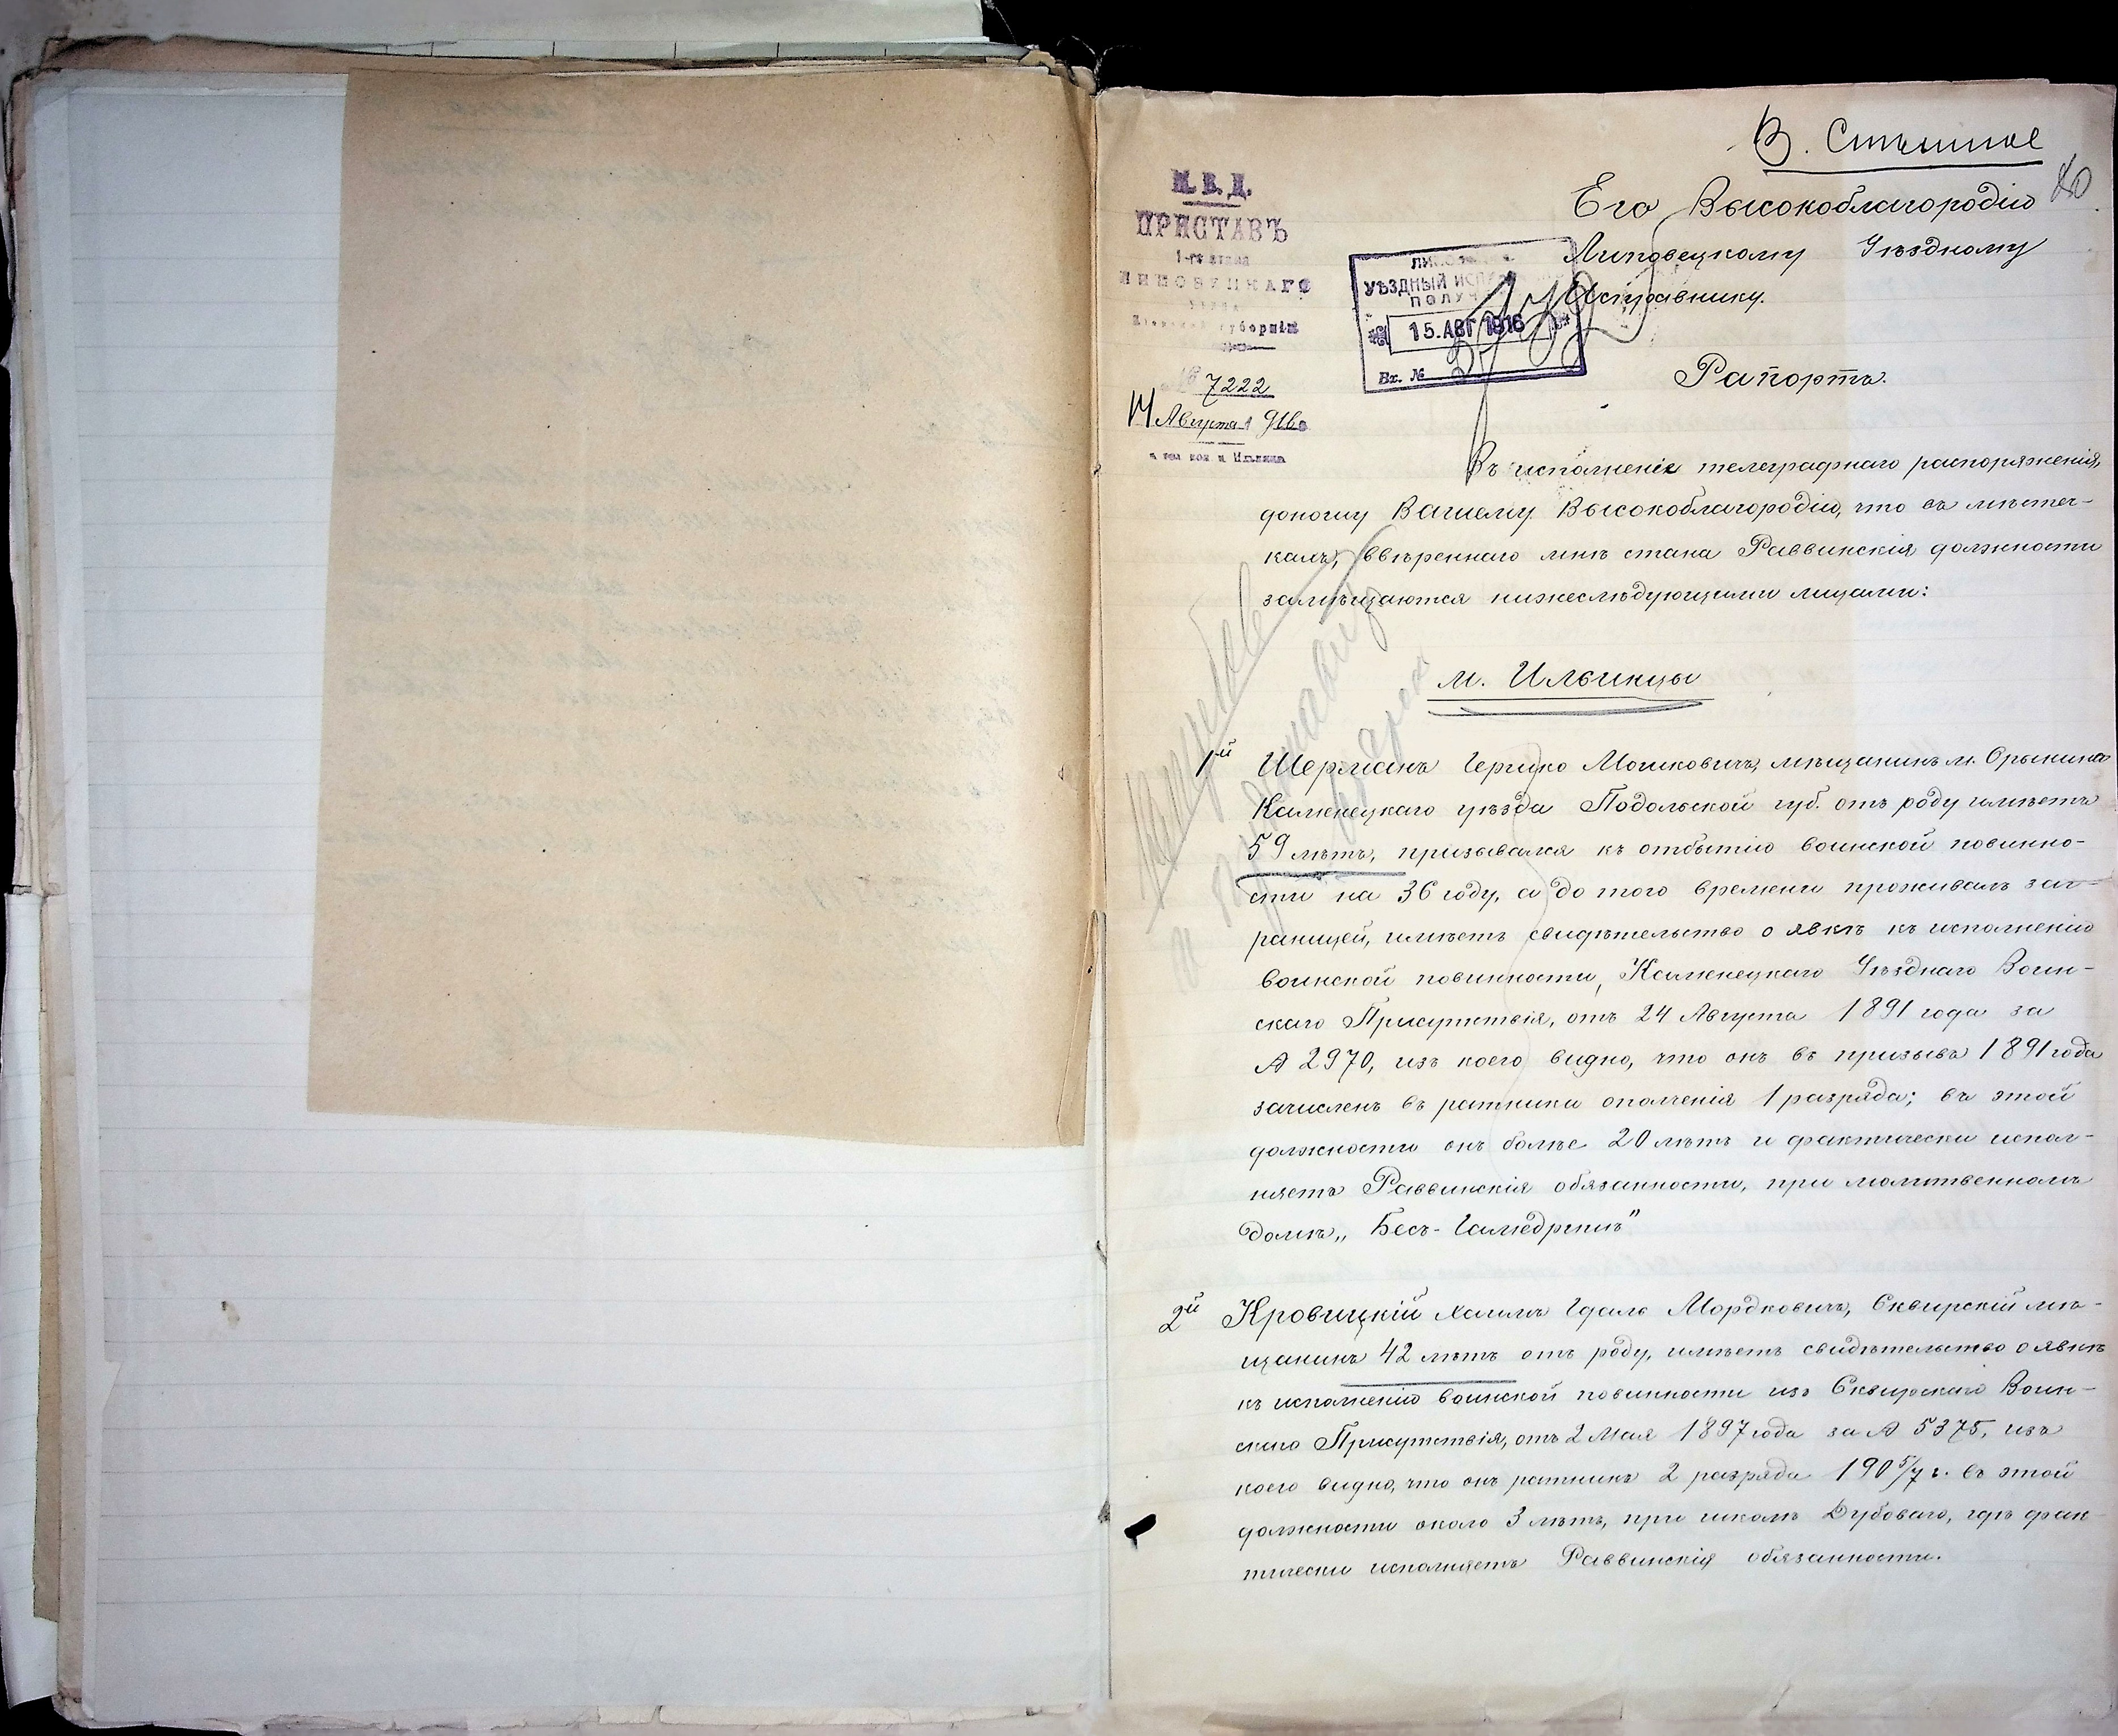 В. Спѣшное
40
Его Высокоблагородію
Липовецкому Уѣздному
Исправнику.
М. В. Д.
ПРИСТАВЪ
1-го стана
ЛИПОВЕЦКАГО
уѣзда
Кіевской губерніи
№ 7222
14 Августа 1916 г.
УѢЗДНЫЙ ИСП
ПОЛУЧ
15. АВГ 1916
Вх. №
Рапортъ.
Въ исполненіе телеграфнаго распоряженія,
доношу Вашему Высокоблагородію, что въ мѣстеч-
кахъ, ввѣреннаго мнѣ стана Раввинскія должности
замѣщаются нижеслѣдующими лицами:
м. Ильинцы
1й Шерманъ Гершко Мошковичъ, мѣщанинъ м. Орынина
Каменецкаго уѣзда Подольской губ. отъ роду имѣетъ
59 лѣтъ, призывался къ отбытію воинской повинно-
сти на 36 году, а до того времени проживалъ заг-
раницей, имѣетъ свидѣтельство о явкѣ къ исполненію
воинской повинности, Каменецкаго Уѣзднаго Воин-
скаго Присутствія, отъ 24 Августа 1891 года за
№ 2970, изъ коего видно, что онъ въ призывъ 1891 года
зачисленъ въ ратники ополченія 1 разряда; въ этой
должности онъ болѣе 20 лѣтъ и фактически испол-
няетъ Раввинскія обязанности, при молитвенномъ
домѣ „Бесъ-Гамедришъ"
2й Кровицкій Хаимъ Гдаль Мордковичъ, Сквирскій мѣ-
щанинъ 42 лѣтъ отъ роду, имѣетъ свидѣтельство о явкѣ
къ исполненію воинской повинности изъ Сквирскаго Воин-
скаго Присутствія, отъ 2 Мая 1897 года за № 5375, изъ
коего видно, что онъ ратникъ 2 разряда 1905/7 г. въ этой
должности около 3 лѣтъ, при школѣ Дубоваго, гдѣ фак-
тически исполняетъ Раввинскія обязанности.